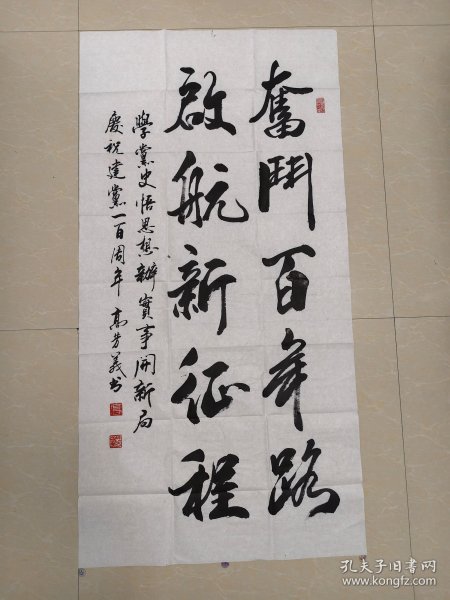 奮鬥百年路
啟航新征程
學黨史悟思想辦實事開新局
慶祝建黨一百周年 高芳義书
孔夫子旧书网
www.kongfz.com